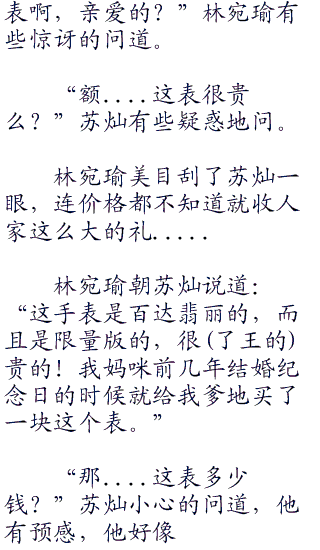 表啊，亲爱的？”林宛瑜有
些惊讶的问道。
“额....这表很贵
么？”苏灿有些疑惑地问。
林宛瑜美目刮了苏灿一
眼，连价格都不知道就收人
家这么大的礼.....
林宛瑜朝苏灿说道：
“这手表是百达翡丽的，而
且是限量版的，很(了王的)
贵的！我妈咪前几年结婚纪
念日的时候就给我爹地买了
一块这个表。”
“那....这表多少
钱？”苏灿小心的问道，他
有预感，他好像